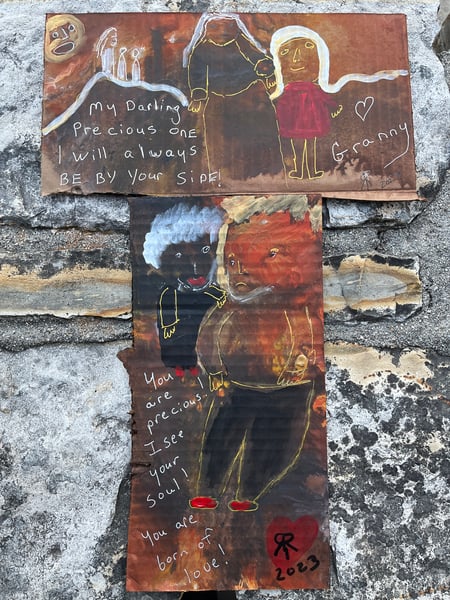 My Darling
Precious one
I will always
BE BY YOUR SIDE!
Granny
You
are
precious!
I see
your
soul!
You are
born of
love!
2023